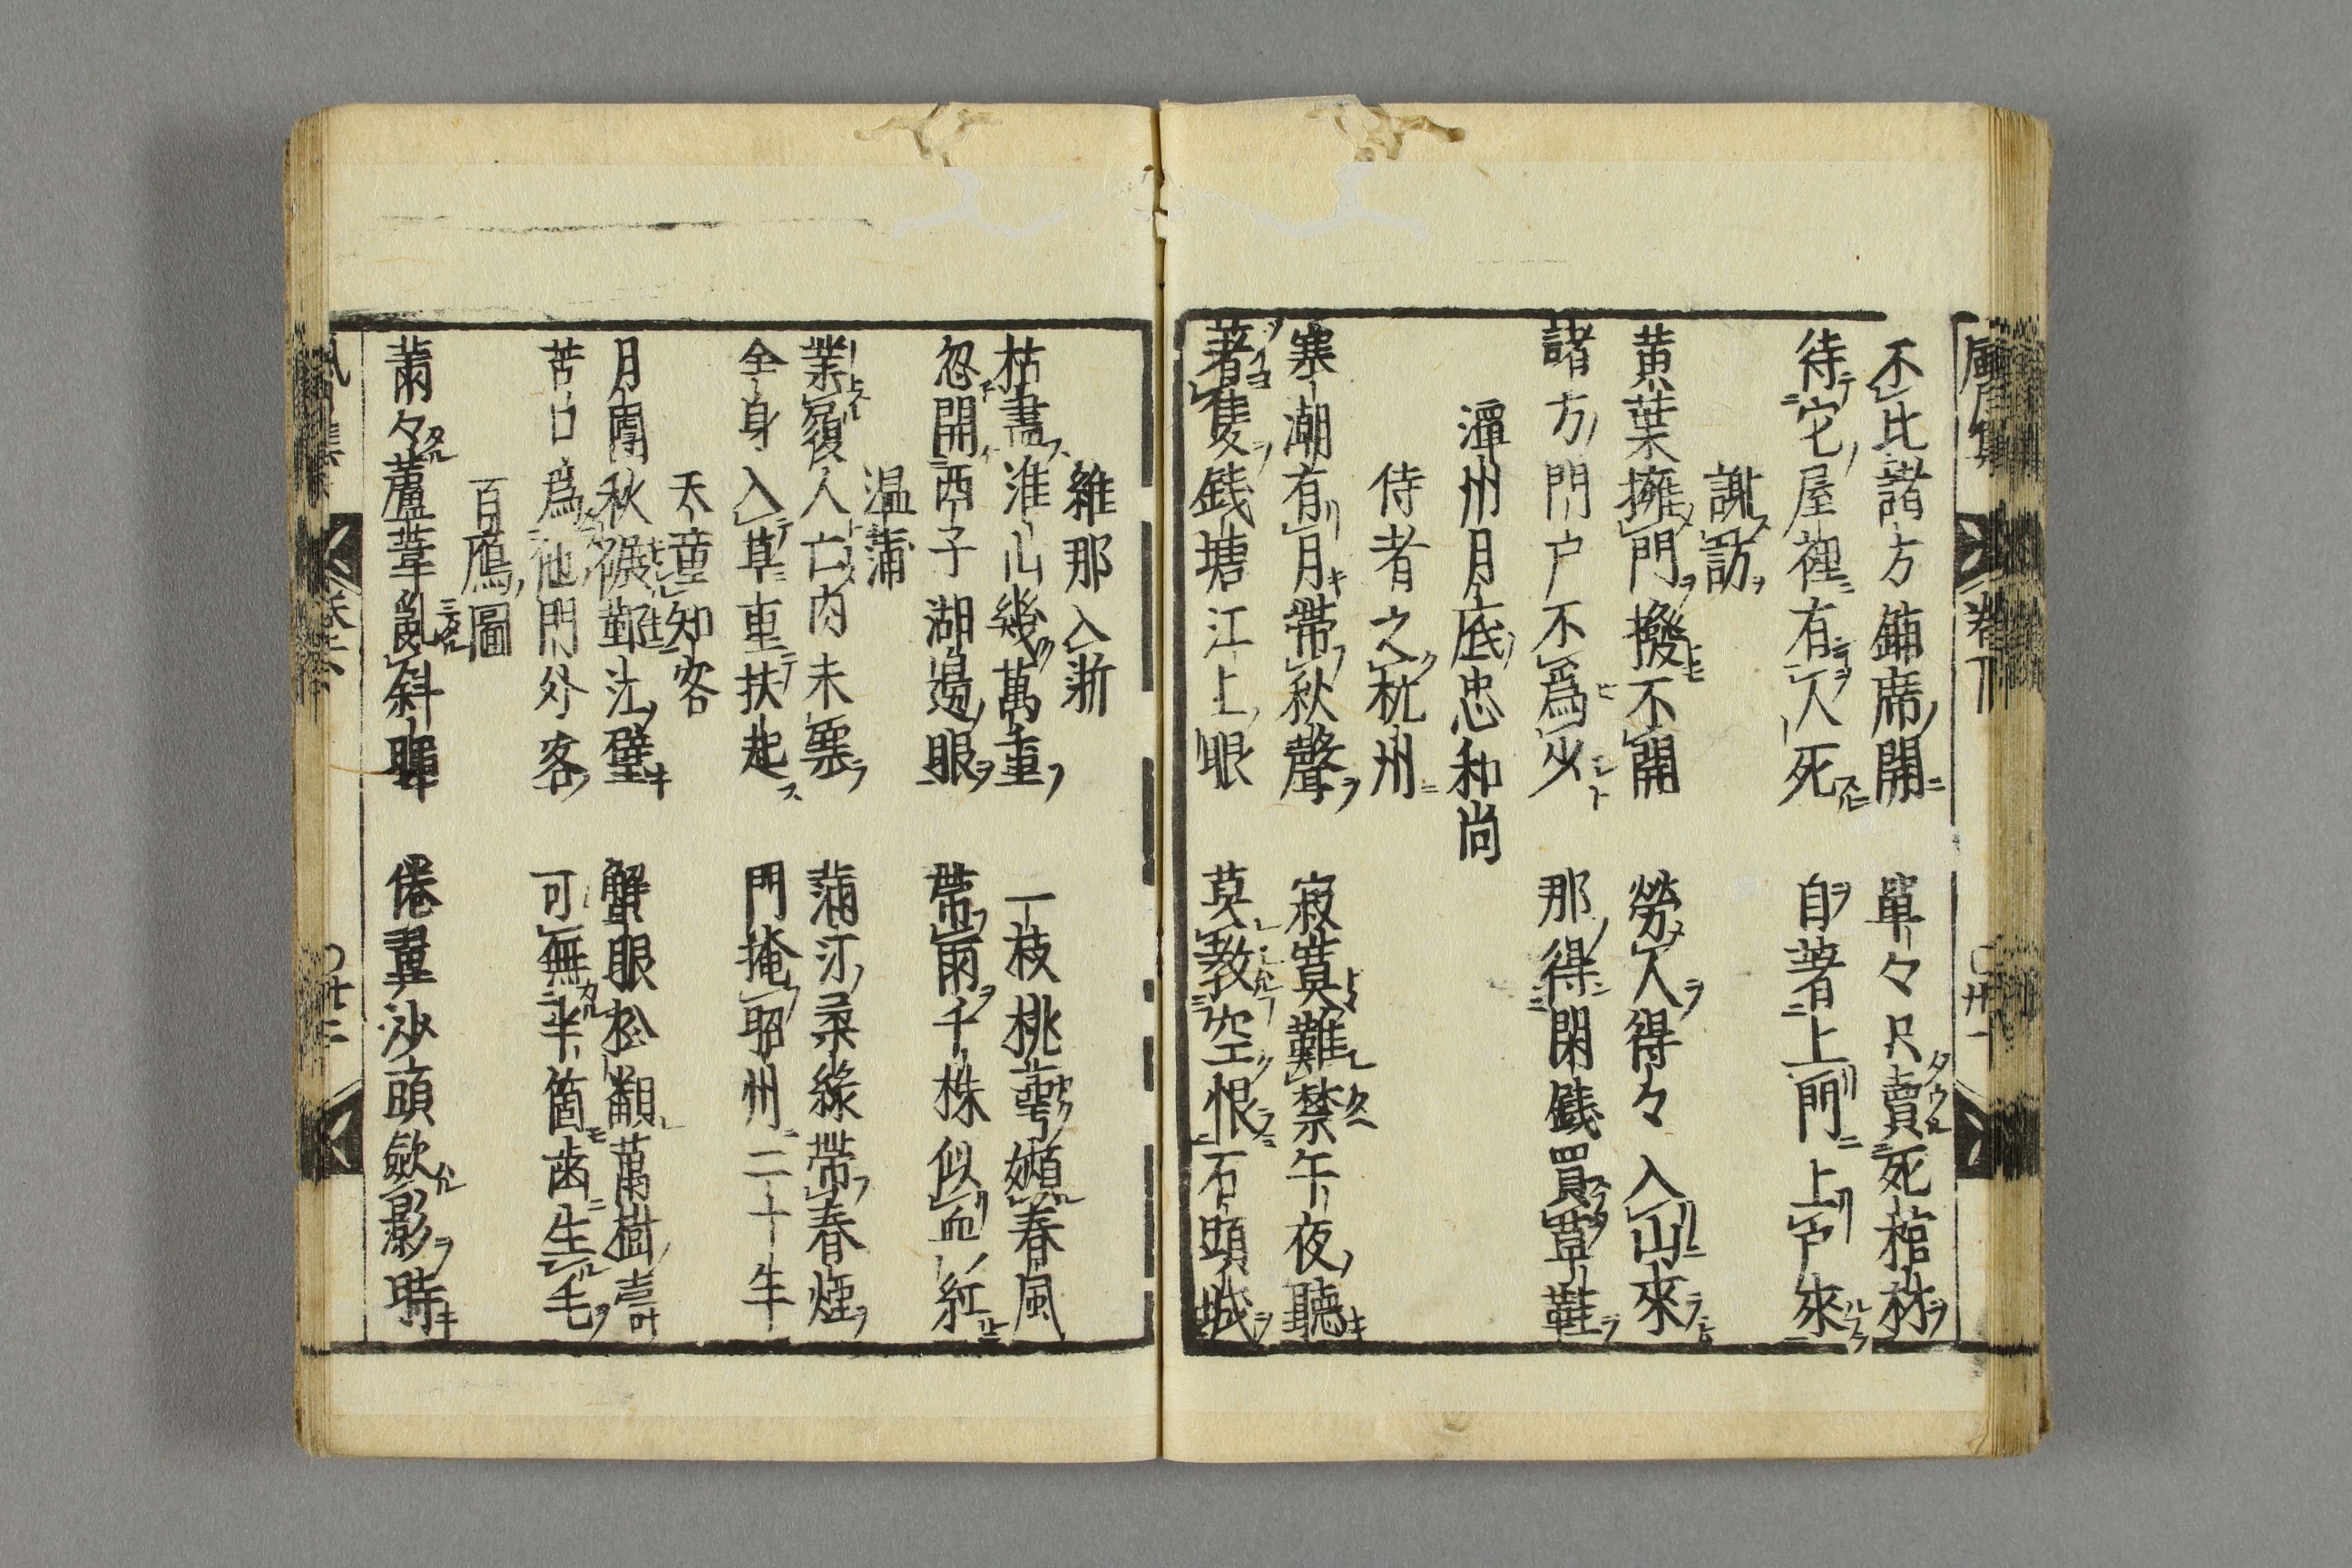 不比諸方鋪席開　單々只賣死棺材
待它屋裡有人死　自著上門上戶來
謝訪
黄葉擁門撥不開　勞人得々入山來
諸方門戸不爲少　那得閑錢買草鞋
潭州月庭忠和尚
侍者之杭州
寒潮有月帶秋聲　寂寞難禁午夜聽
著隻錢塘江上眼　莫教空恨石頭城
維那入浙
枯盡淮山幾萬重　一枝桃萼嬾春風
忽開西子湖邊眼　帶雨千株似血紅
温蒲
業履人亡肉未寒　蒲汀柔綠帶春煙
全身入草重扶起　門掩昭州二十年
天童知客
月團秋碾鄞江璧　蟹眼松翻萬樹濤
苦口爲他門外客　可無半箇齒生毛
百鴈圖
蕭々蘆葦亂斜暉　倦翼沙頭斂影時